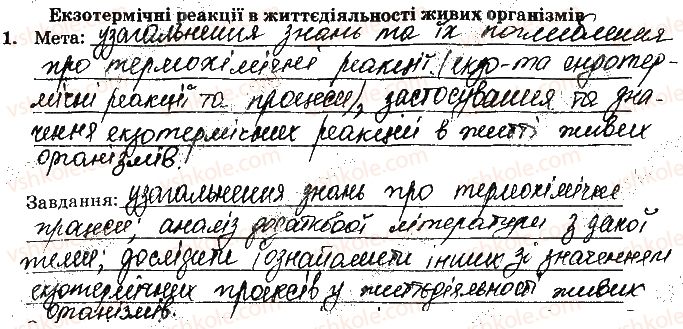 Екзотермічні реакції в життєдіяльності живих організмів
1. Мета: узагальнення знань та їх поглиблення
про термохімічні реакції (екзо-та ендотер-
мічні реакції та процеси), застосування та зна-
чення екзотермічних реакцій в житті живих
організмів.
Завдання: узагальнення знань про термохімічні
процеси; аналіз додаткової літератури з даної
теми; дослідити і ознайомити інших зі значенням
екзотермічних процесів у життєдіяльності живих
організмів.